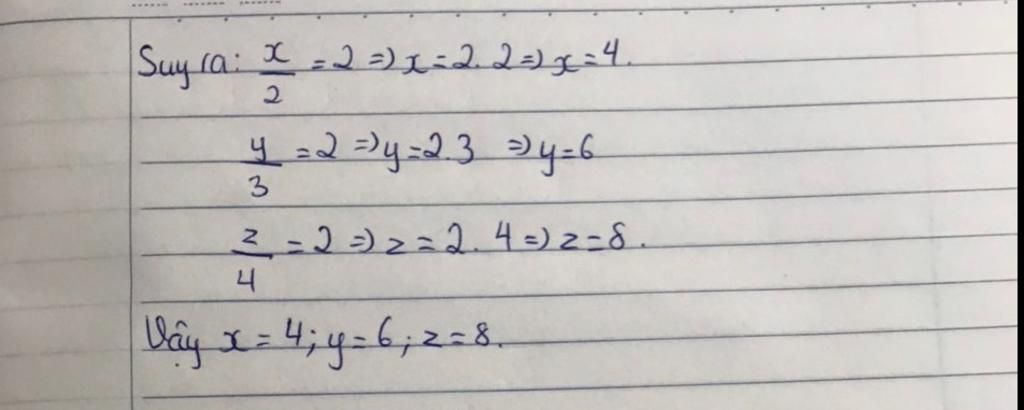 Suy ra: x/2 = 2 => x = 2. 2 => x = 4.
y/3 = 2 => y = 2.3 => y = 6
z/4 = 2 => z = 2. 4 => z = 8.
Vậy x = 4; y = 6; z = 8.